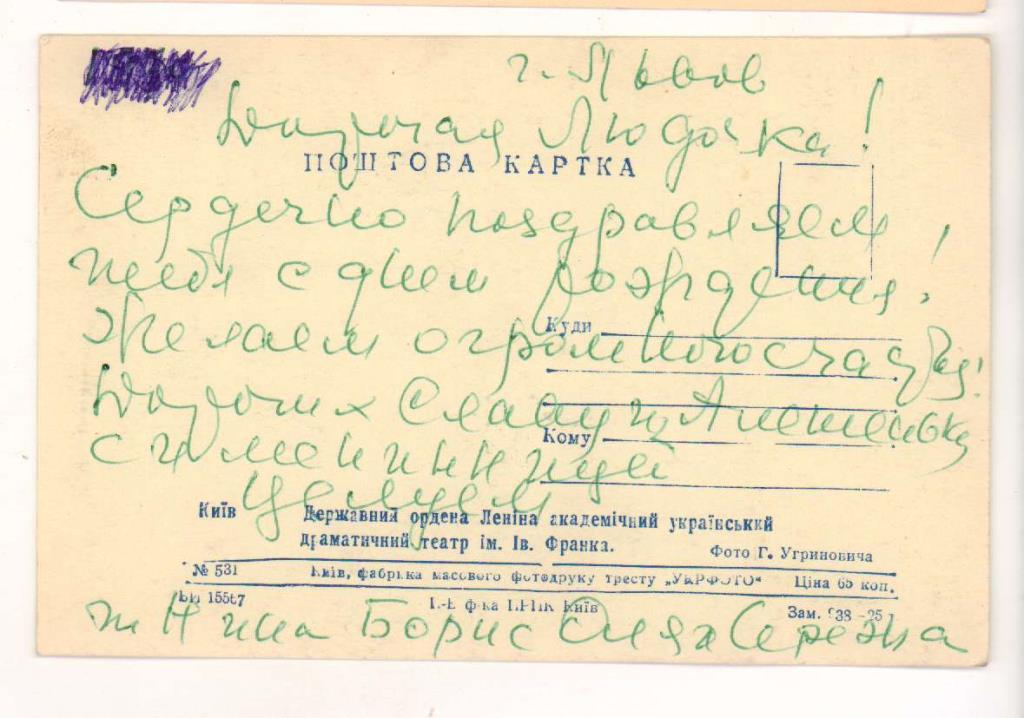 г. Львов
Дорогая Людочка!
ПОШТОВА КАРТКА
Сердечно поздравляем
тебя с днем рождения!
Куди
Желаем огромного счастья!
Дорогих Славу и Алешеньку
Кому
с именинницей
Целуем
Київ Державний ордена Леніна академічний український
драматичний театр ім. Ів. Франка.
Фото Г. Угриновича
№ 531 Київ, фабрика масового фотодруку тресту „УКРФОТО“ Ціна 65 коп.
БП 15567 Київ Зам. 938
т Нина Борис Оля Сережа